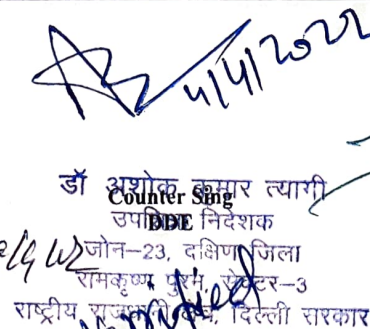 4/4/2022
डॉ अशोक कुमार त्यागी
Counter Sing
उप निदेशक
DDE
जोन-23, दक्षिण जिला
रामकृष्ण पुरम, सेक्टर-3
राष्ट्रीय राजधानी क्षेत्र, दिल्ली सरकार